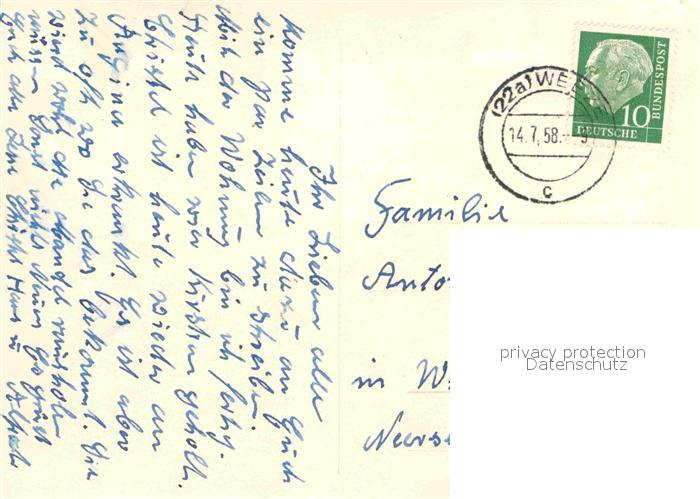 Ihr Lieben alle
Komme heute dazu an Euch
ein paar Zeilen zu schreiben.
Mit der Wohnung bin ich fertig.
Heute haben wir Kirschen geholt.
ist heute wieder an
Angina erkrankt. Es ist aber
zu oft wo Sie das bekommt. Sie
wird wohl die Mandel rausholen
müssen sonst nichts Neues Es grüßt
Euch alle
(22a) WEE
14.7.58.
c
10
DEUTSCHE
BUNDESPOST
Familie
Anto
in W
Neers
privacy protection
Datenschutz